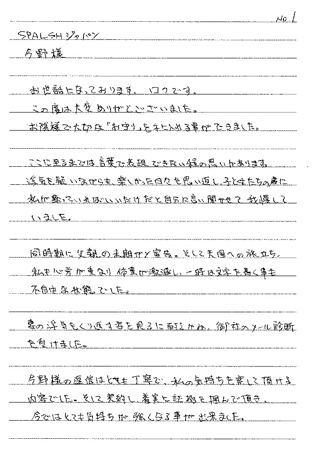 NO. 1
SPALSHジャパン
今野様
お世話になっております。ロクです。
この度は大変ありがとうございました。
お陰様で大切な「お守り」を手に入れる事ができました。
ここに至るまでは言葉で表現できない程の思いがあります。
浮気を疑いながらも、楽しかった日々を思い返し、子どもたちの為に
私が黙っていればいいだけだと自分に言い聞かせて我慢して
いました。
同時期に父親の末期ガン宣告。そして天国への旅立ち、
私も心労が重なり体重が激減し、一時は文字を書く事も
不自由な状態でした。
妻の浮気をくり返す姿を見るに耐えかね、御社のメール診断
を受けました。
今野様の返信はとても丁寧で、私の気持ちを察して頂ける
内容でした。そして契約し、着実と証拠を掴んで頂き、
今ではとても気持ちが強くなる事が出来ました。